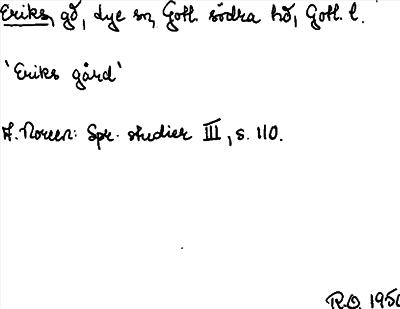 Eriks, gd, Lye sn, Gotl. södra hd, Gotl. l.
'Eriks gård'
A. Noreen: Spr. studier III, s. 110.
R.O. 1950